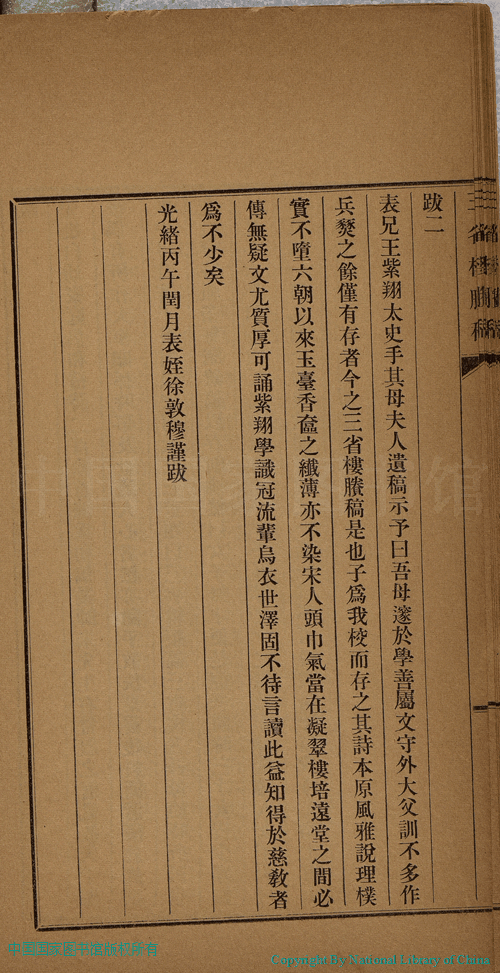 跋二
表兄王紫翔太史手其母夫人遺稿示予曰吾母邃於學善屬文守外大父訓不多作
兵燹之餘僅有存者今之三省樓賸稿是也子爲我校而存之其詩本原風雅說理樸
實不墮六朝以來玉臺香奩之纖薄亦不染宋人頭巾氣當在凝翠樓培遠堂之間必
傳無疑文尤質厚可誦紫翔學識冠流輩烏衣世澤固不待言讀此益知得於慈敎者
爲不少矣
光緒丙午閏月表姪徐敦穆謹跋
三省樓賸稿
中国国家图书馆版权所有
Copyright By National Library of China